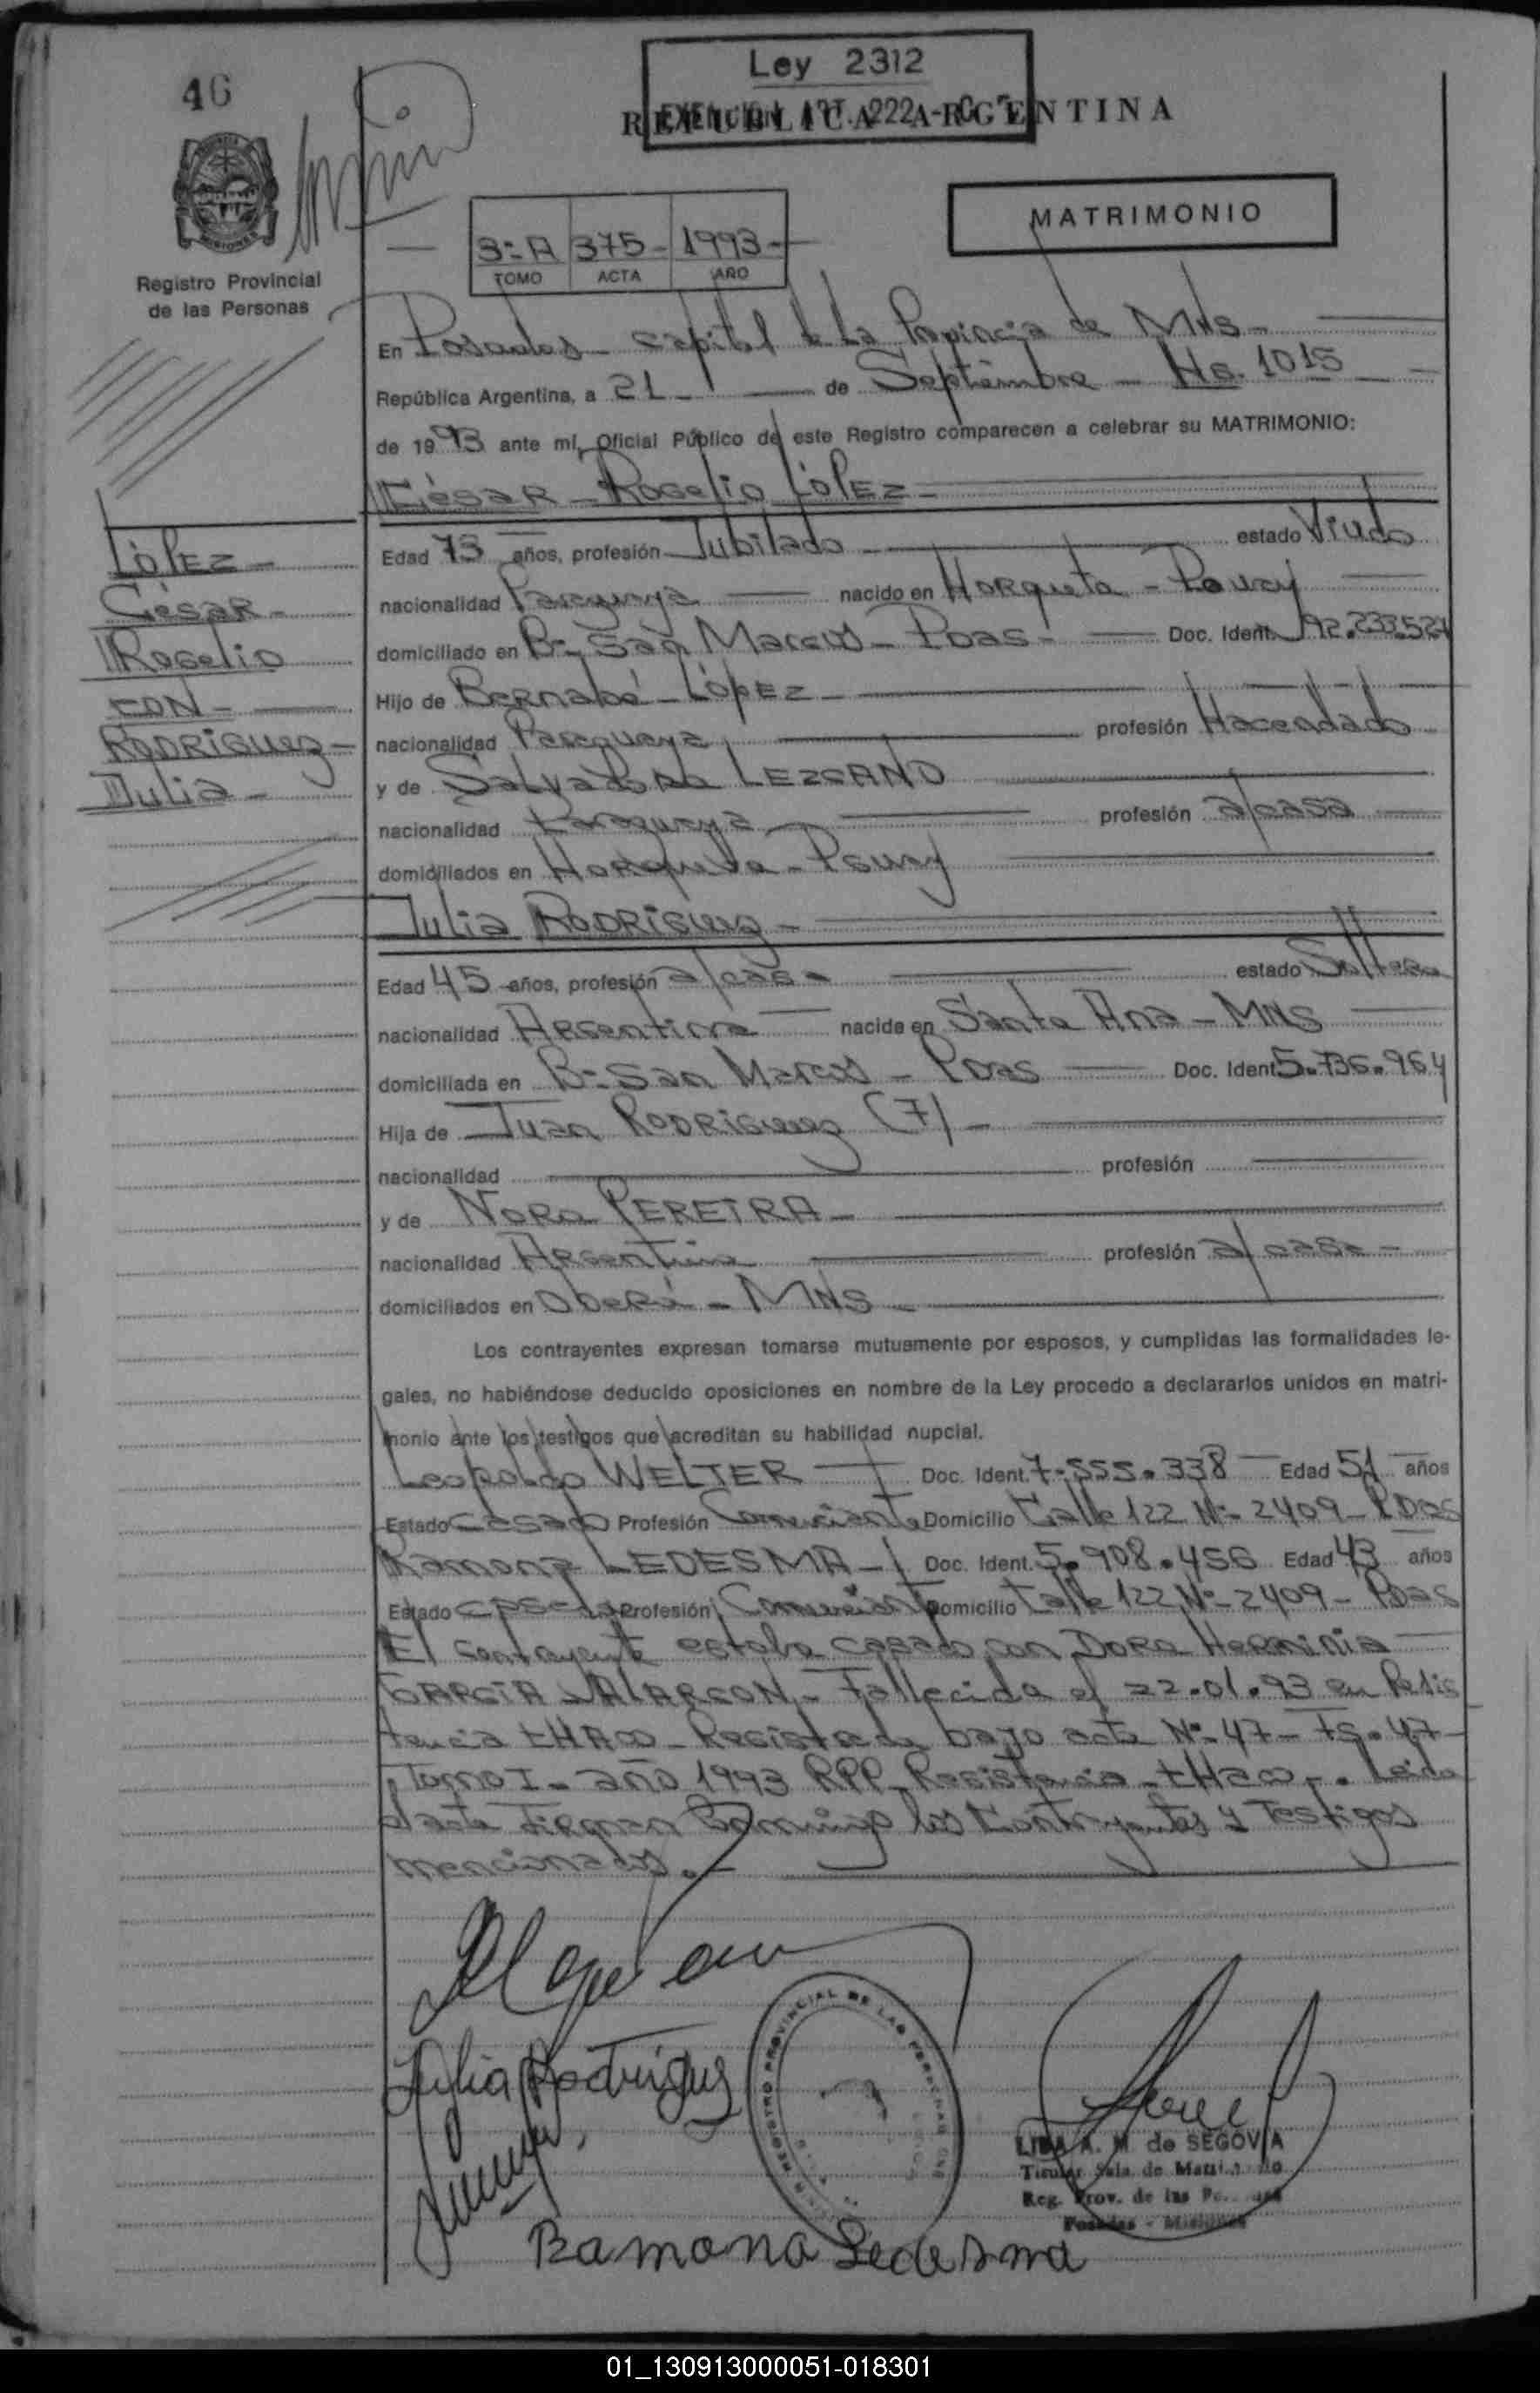 46
Ley 2312
EXENCION ART. 222 - C
REPUBLICA ARGENTINA
MATRIMONIO
3º A 375 - 1993 -
TOMO ACTA AÑO
MISIONES
Registro Provincial
de las Personas
En Posadas - capital de la Provincia de MNS -
República Argentina, a 21 - de Septiembre - Hs. 1015
de 1993 ante mí, Oficial Público de este Registro comparecen a celebrar su MATRIMONIO:
César - Rogelio López -
López -
César -
Rogelio
CON -
Rodriguez -
Julia -
Edad 73 años, profesión Jubilado - estado Viudo
nacionalidad Paraguaya nacido en Horqueta - Pguay
domiciliado en Bº San Marcos - Pdas - Doc. Ident. 92.233.524
Hijo de Bernabé - López -
nacionalidad Paraguaya profesión Hacendado
y de Salvadora LEZCANO
nacionalidad Paraguaya profesión a/casa
domiciliados en Horqueta - Pguay
Julia Rodriguez -
Edad 45 años, profesión a/casa estado Soltera
nacionalidad Argentina nacida en Santa Ana - MNS
domiciliada en Bº San Marcos - Pdas Doc. Ident. 5.736.964
Hija de Juan Rodriguez (7) -
nacionalidad profesión
y de Nora PEREIRA -
nacionalidad Argentina profesión a/casa -
domiciliados en Oberá - MNS -
Los contrayentes expresan tomarse mutuamente por esposos, y cumplidas las formalidades le-
gales, no habiéndose deducido oposiciones en nombre de la Ley procedo a declararlos unidos en matri-
monio ante los testigos que acreditan su habilidad nupcial.
Leopoldo WELTER Doc. Ident. 7.555.338 Edad 51 años
Estado casado Profesión Comerciante Domicilio Calle 122 Nº 2409 - Pdas
Ramona LEDESMA - Doc. Ident. 5.908.456 Edad 43 años
Estado casada Profesión Comerciante Domicilio Calle 122 Nº 2409 - Pdas
El contrayente estaba casado con Dora Herminia
GARCIA ALARCON - Fallecida el 22.01.93 en Resis
tencia CHACO - Registrada bajo acta Nº 47 - Fs. 47 -
Tomo I - año 1993 RPP - Resistencia - CHACO - . Leída
el acta firman conmigo los Contrayentes y Testigos
mencionados . -
Julia Rodriguez
REGISTRO PROVINCIAL DE LAS PERSONAS
LIDIA A. M. de SEGOVIA
Titular Sala de Matrimonio
Reg. Prov. de las Personas
Posadas - Misiones
Ramona Ledesma
01_130913000051-018301